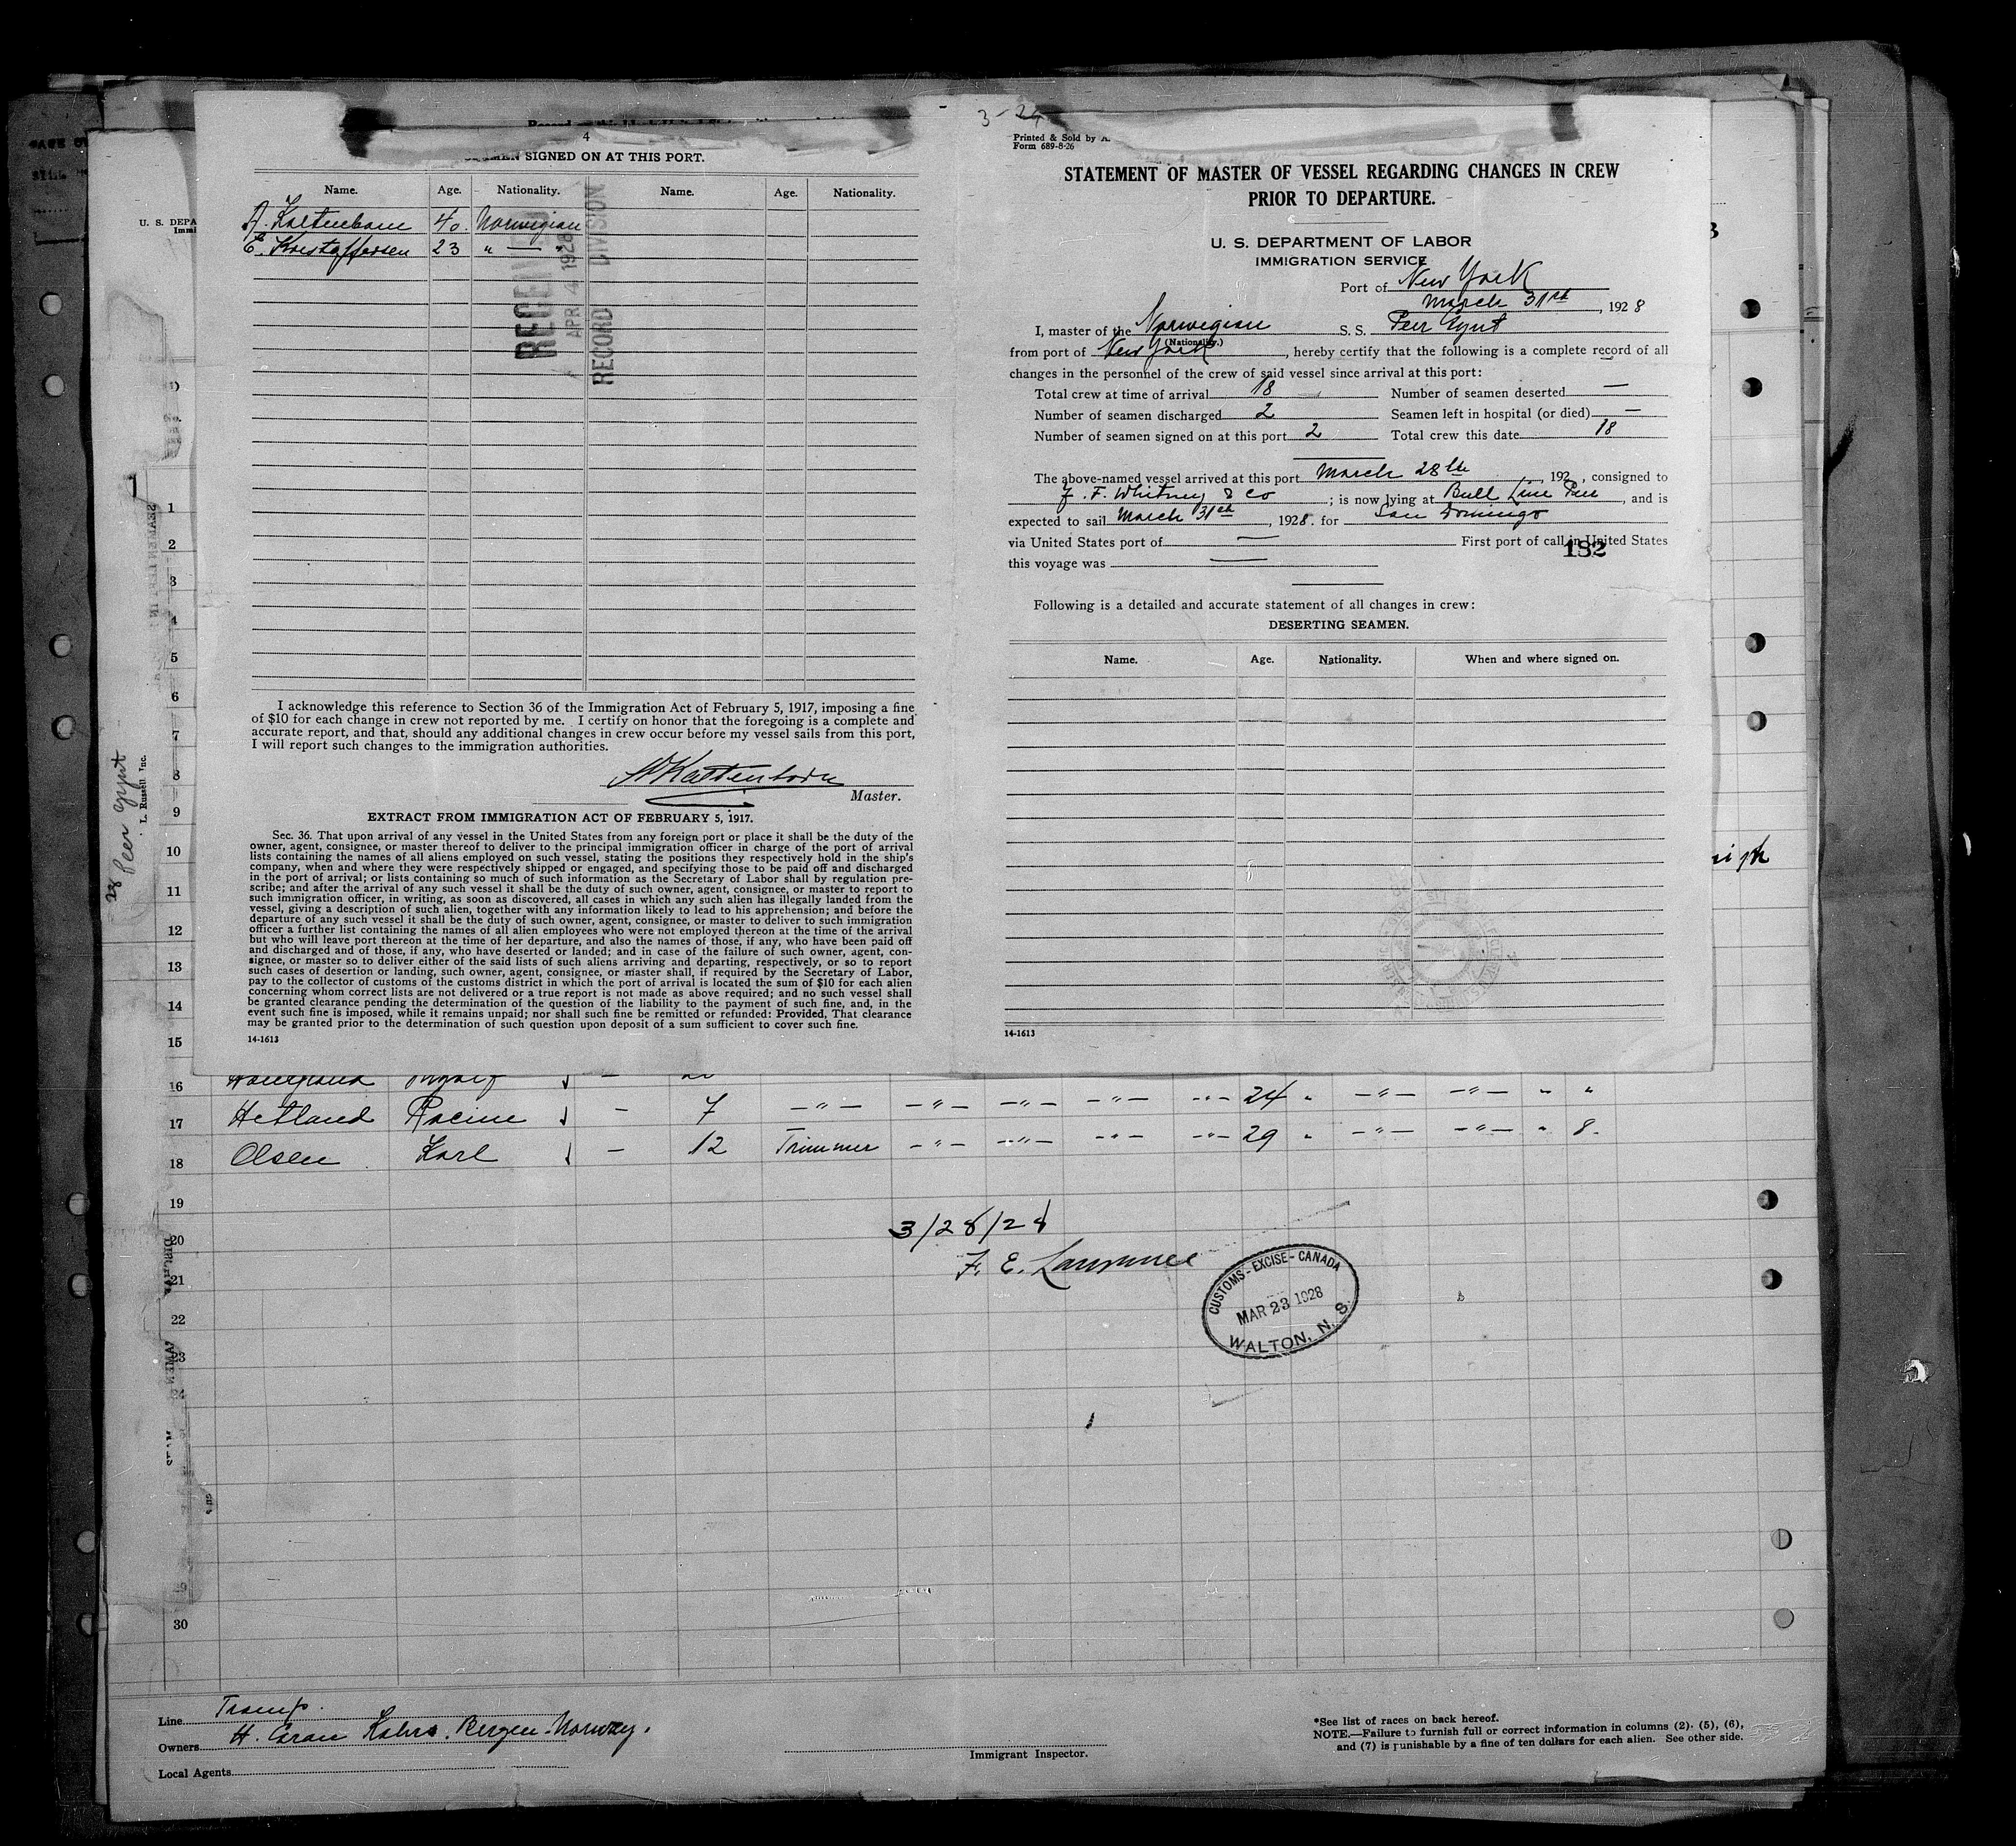 4
SEAMEN SIGNED ON AT THIS PORT.
Name. Age. Nationality. Name. Age. Nationality.
A. Kaltenborn 40. Norwegian
E. Kristoffersen 23 " — "
RECEIVED
APR 4 1928
RECORD DIVISION
I acknowledge this reference to Section 36 of the Immigration Act of February 5, 1917, imposing a fine
of $10 for each change in crew not reported by me. I certify on honor that the foregoing is a complete and
accurate report, and that, should any additional changes in crew occur before my vessel sails from this port,
I will report such changes to the immigration authorities.
Kaltenborn
Master.
EXTRACT FROM IMMIGRATION ACT OF FEBRUARY 5, 1917.
Sec. 36. That upon arrival of any vessel in the United States from any foreign port or place it shall be the duty of the
owner, agent, consignee, or master thereof to deliver to the principal immigration officer in charge of the port of arrival
lists containing the names of all aliens employed on such vessel, stating the positions they respectively hold in the ship's
company, when and where they were respectively shipped or engaged, and specifying those to be paid off and discharged
in the port of arrival; or lists containing so much of such information as the Secretary of Labor shall by regulation pre-
scribe; and after the arrival of any such vessel it shall be the duty of such owner, agent, consignee, or master to report to
such immigration officer, in writing, as soon as discovered, all cases in which any such alien has illegally landed from the
vessel, giving a description of such alien, together with any information likely to lead to his apprehension; and before the
departure of any such vessel it shall be the duty of such owner, agent, consignee, or master to deliver to such immigration
officer a further list containing the names of all alien employees who were not employed thereon at the time of the arrival
but who will leave port thereon at the time of her departure, and also the names of those, if any, who have been paid off
and discharged and of those, if any, who have deserted or landed; and in case of the failure of such owner, agent, con-
signee, or master so to deliver either of the said lists of such aliens arriving and departing, respectively, or so to report
such cases of desertion or landing, such owner, agent, consignee, or master shall, if required by the Secretary of Labor,
pay to the collector of customs of the customs district in which the port of arrival is located the sum of $10 for each alien
concerning whom correct lists are not delivered or a true report is not made as above required; and no such vessel shall
be granted clearance pending the determination of the question of the liability to the payment of such fine, and, in the
event such fine is imposed, while it remains unpaid; nor shall such fine be remitted or refunded: Provided, That clearance
may be granted prior to the determination of such question upon deposit of a sum sufficient to cover such fine.
14-1613
3-29
Printed & Sold by A.
Form 689-8-26
STATEMENT OF MASTER OF VESSEL REGARDING CHANGES IN CREW
PRIOR TO DEPARTURE.
U. S. DEPARTMENT OF LABOR
IMMIGRATION SERVICE
Port of New York
March 31st, 1928
I, master of the Norwegian S. S. Peer Gynt
(Nationality.)
from port of New York, hereby certify that the following is a complete record of all
changes in the personnel of the crew of said vessel since arrival at this port:
Total crew at time of arrival 18 Number of seamen deserted —
Number of seamen discharged 2 Seamen left in hospital (or died) —
Number of seamen signed on at this port 2 Total crew this date 18
The above-named vessel arrived at this port March 28th, 192 , consigned to
F. F. Whitney & Co; is now lying at Bull Line Pier, and is
expected to sail March 31st, 1928. for San Domingo
via United States port of — First port of call in United States
182
this voyage was —
Following is a detailed and accurate statement of all changes in crew:
DESERTING SEAMEN.
Name. Age. Nationality. When and where signed on.
14-1613
U. S. DEPA
Immi
1
2
3
4
5
6
7
8
9
10
11
12
13
14
15
28 Peer Gynt
L. Russell Inc.
16
17 Hetland Racine √ — 7 —"— —"— —"— —"— —"— 24 " —"— —"— " "
18 Olsen Karl √ — 12 Trimmer —"— —"— —"— —"— 29 " —"— —"— " 8.
19
20
21
22
23
24
30
3/28/28
F. E. Lawrence
CUSTOMS-EXCISE-CANADA
MAR 23 1928
WALTON, N. S.
Line Tramp.
Owners Kahrs. Bergen. Norway.
Local Agents
Immigrant Inspector.
*See list of races on back hereof.
NOTE.—Failure to furnish full or correct information in columns (2), (5), (6),
and (7) is punishable by a fine of ten dollars for each alien. See other side.